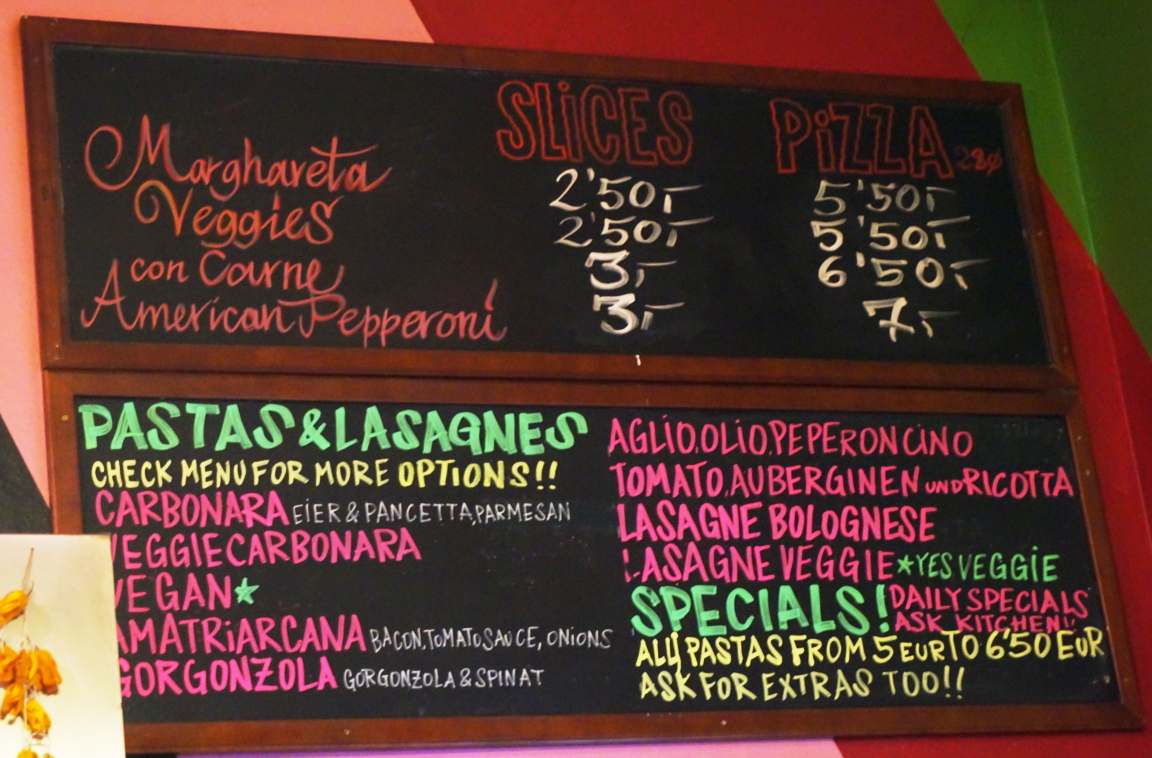 SLiCES PiZZA
Marghareta 2'50,- 5'50,-
Veggies 2'50,- 5'50,-
con Carne 3,- 6'50,-
American Pepperoni 3,- 7,-
PASTAS & LASAGNES
CHECK MENU FOR MORE OPTIONS!!
CARBONARA EiER & PANCETTA,PARMESAN
VEGGIECARBONARA
VEGAN*
AMATRiARCANA BACON,TOMATOSAUCE, ONIONS
GORGONZOLA GORGONZOLA & SPINAT
AGLIO,OLIO,PEPERONCINO
TOMATO,AUBERGINEN UND RICOTTA
LASAGNE BOLOGNESE
LASAGNE VEGGIE *YES VEGGIE
SPECIALS! DAILY SPECIALS
ASK KITCHEN!!
ALLY PASTAS FROM 5 EUR TO 6'50 EUR
ASK FOR EXTRAS TOO!!